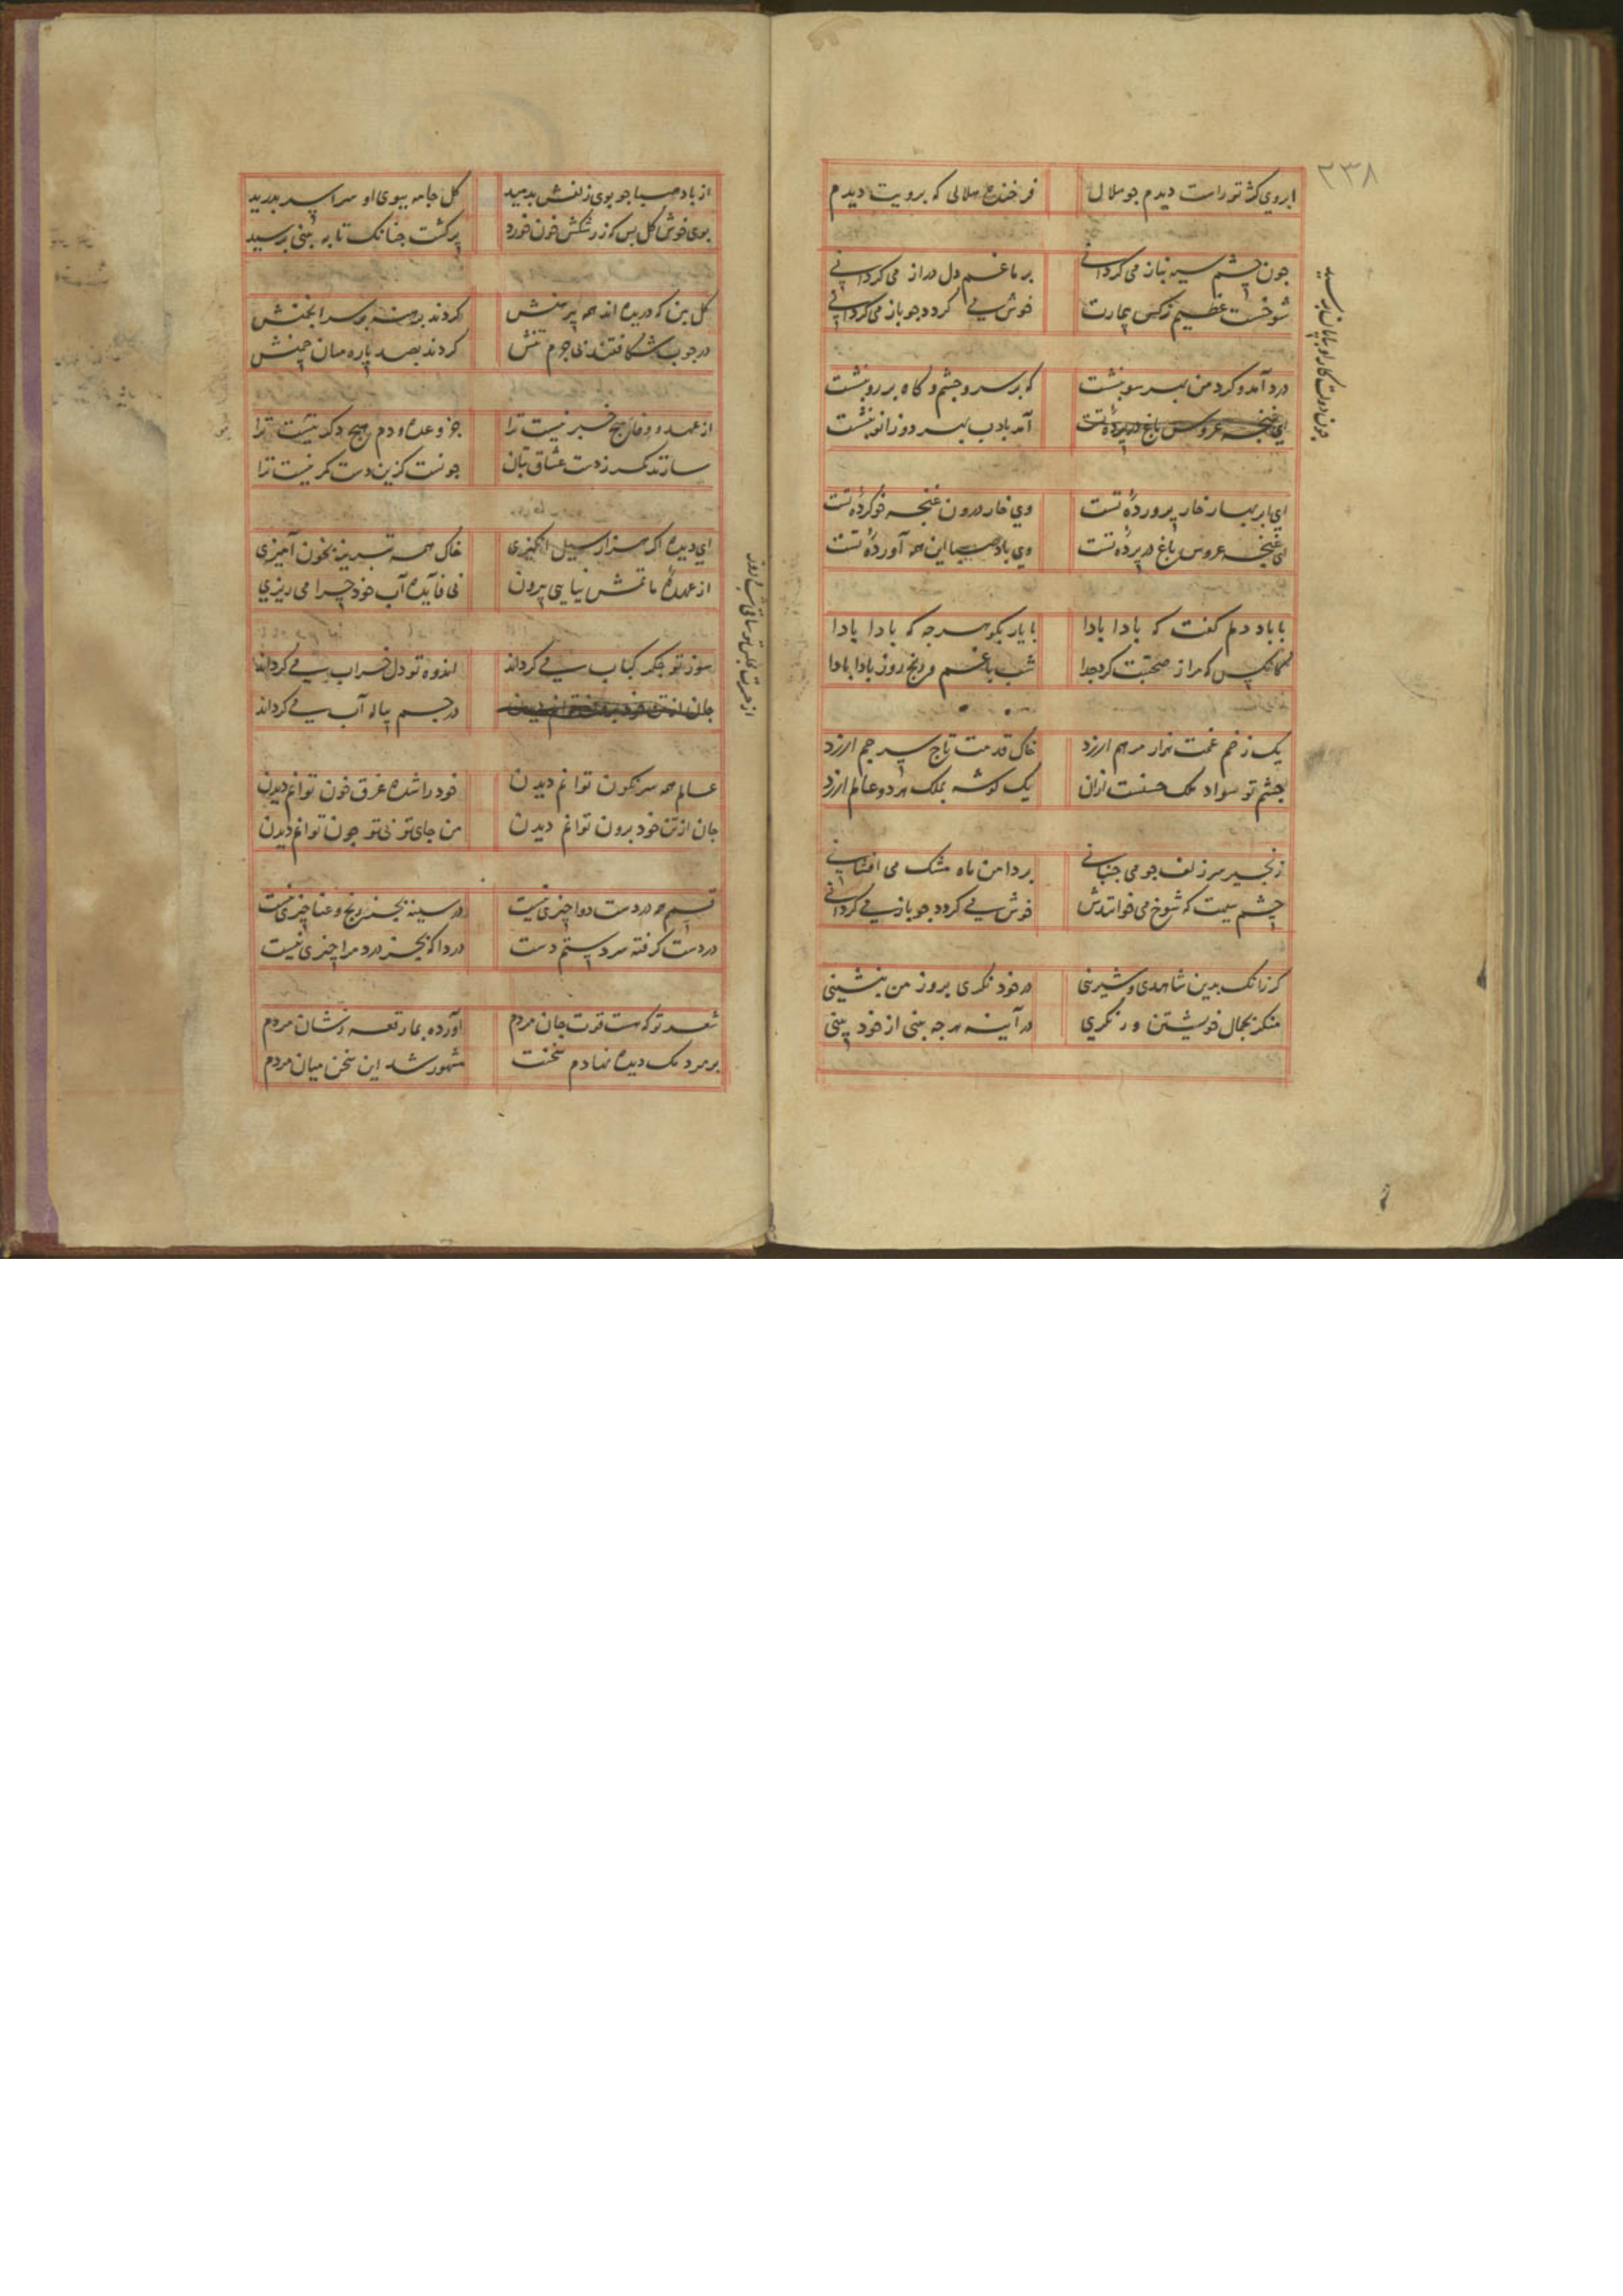 ۲۳۸
ابروی کژ تو راست دیدم جو هلال فرخنده هلالی که برویت دیدم
جون چشم سیه بناز می کردانی بر ما غم دل دراز می کردانی
شوخست عظیم نرکس بیمارت خوش می کردد جو باز می کردانی
درد آمد و کرد من بهر سو بنشست که بر سر و جشم و کاه بر رو بنشست
ای غنجه عروس باغ در پردۀ تست آمد بادب بهر دو زانو بنشست
جون دولت کار او بپایان برسید
ای ابر بهار خار پروردۀ تست وی خار درون غنجه خو کردۀ تست
ای غنجه عروس باغ در پردۀ تست وی باد صبا این همه آوردۀ تست
با باد دلم کفت که بادا بادا با یار بکو هرجه که بادا بادا
کانکس که مرا ز صحبتت کرد جدا شب با غم و رنج روز بادا بادا
یک زخم غمت هزار مرهم ارزد خاک قدمت تاج سر جم ارزد
جشم تو سواد ملک حسنست ازان یک کوشه بملک هر دو عالم ارزد
زنجیر سر زلف جو می جنبانی بر دامن ماه مشک می افشانی
چشم سیهت که شوخ می خوانندش خوش می کردد جو باز می کردانی
کر زانک بدین شاهدی و شیرینی در خود نکری بروز من بنشینی
منکر بجمال خویشتن ور نکری در آینه هرجه بینی از خود بینی
از باد صبا جو بوی زلفش بدمید کل جامه ببوی او سراسر بدرید
بوی خوش کل بس که ز رشکش خون خورد برکشت جنانک تا به بینی برسید
کل بین که دریده اند همه پیرهنش کردند برهنه بر سر انجمنش
در جوب شکافتند بی جرم تنش کردند بصد پاره میان چمنش
از عهد و وفا هیج خبر نیست ترا جز وعده و دم هیج دکر نیست ترا
سازند کمر ز دست عشاق بتان جونست کزین دست کمر نیست ترا
ای دیده اکر هزار سیل انکیزی خاک همه تبریز بخون آمیزی
از عهدۀ ماتمش نیایی بیرون بی فآیده آب خود چرا می ریزی
سوز تو جکر کباب می کرداند اندوه تو دل خراب می کرداند
جان از تن خود برون توانم دیدن در جسم پیاله آب می کرداند
از حسرت مجلس تو ساقی شب و روز
عالم همه سرنکون توانم دیدن خود را شده غرق خون توانم دیدن
جان از تن خود برون توانم دیدن من جای تو بی تو جون توانم دیدن
قسمم همه دردست دوا چیزی نیست در سینه بجز رنج و عنا چیزی نیست
در دست کرفته سر دستم دست دردا که بجز درد مرا چیزی نیست
شعر تو که هست قوت جان مردم آورده بما رقعه رسان مردم
بر مردمک دیده نهادم سخنت مشهور شد این سخن میان مردم